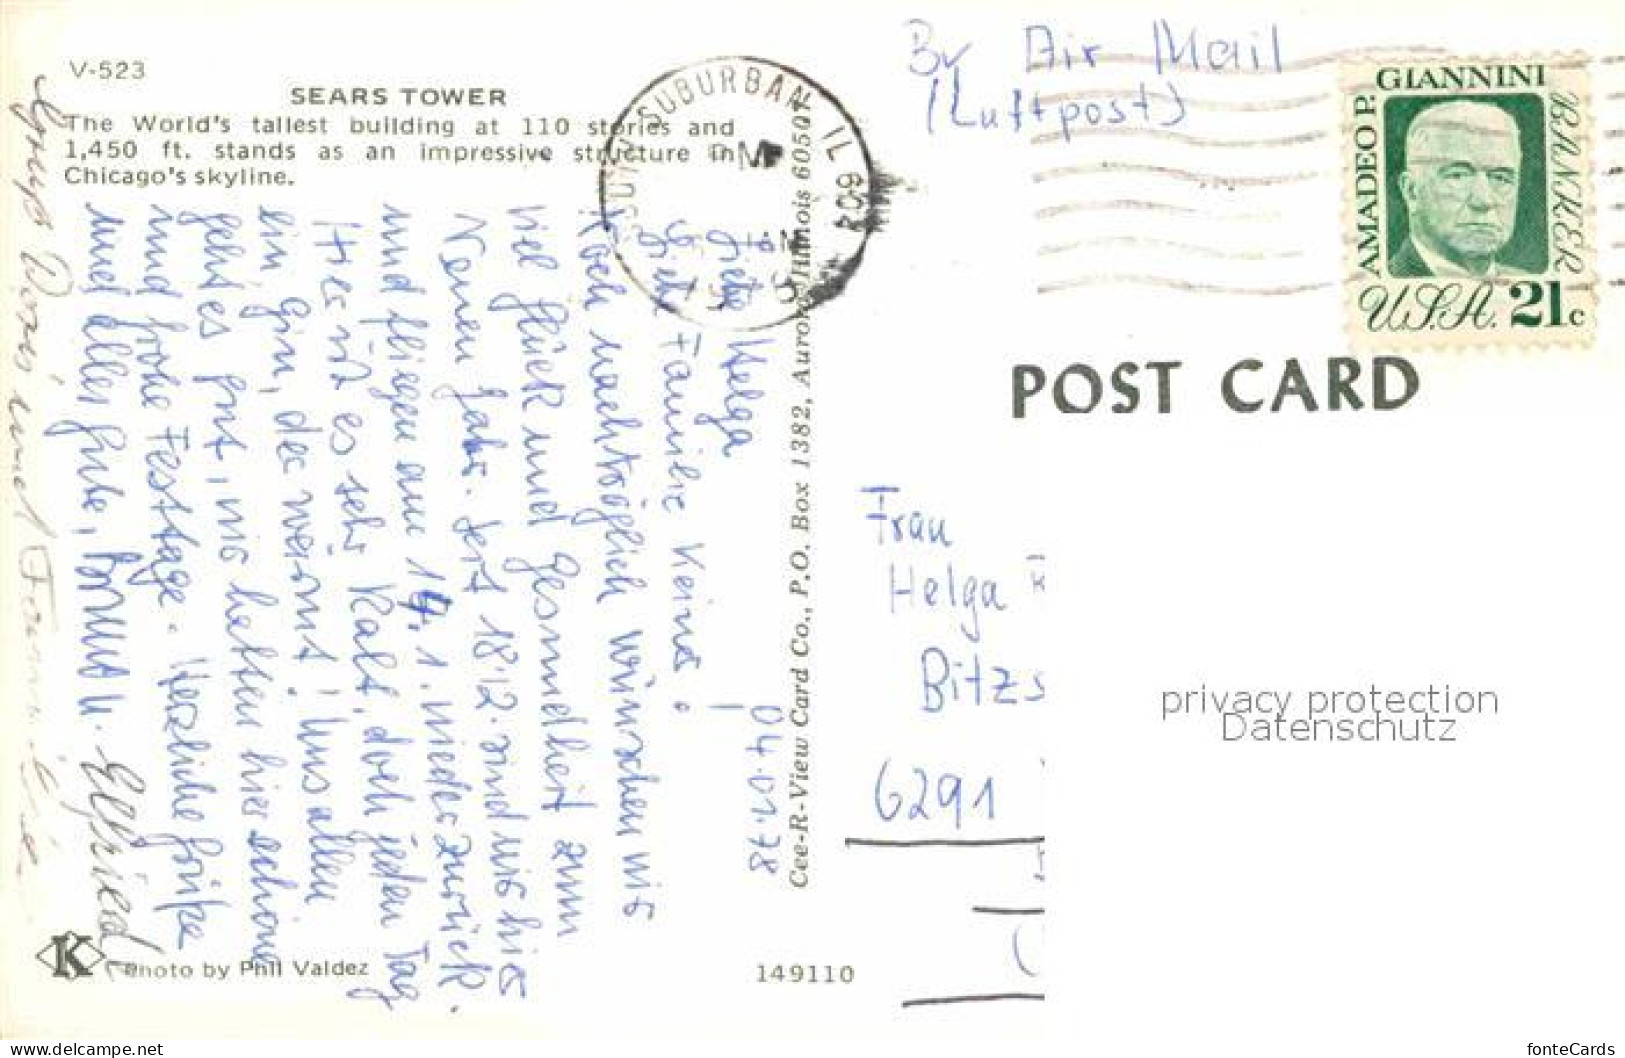 V-523
SEARS TOWER
The World's tallest building at 110 stories and
1,450 ft. stands as an impressive structure in
Chicago's skyline.
04.01.78
Liebe Helga
Liebe Familie
Noch nachträglich wünschen wir
viel Glück und Gesundheit zum
Neuen Jahr. Seit 18.12. sind wir hier
und fliegen am 14.1. wieder zurück.
Hier ist es sehr kalt, doch jeden Tag
ein Gin, der wärmt! Uns allen
geht es gut, wir hatten hier schöne
und frohe Festtage. Herzliche Grüße
und alles Gute,
Gruß und
Photo by Phil Valdez
149110
Cee-R-View Card Co., P.O. Box 1382, Aurora, Illinois 60507
SUBURBAN IL 604
PM
JAN
By Air Mail
(Luftpost)
AMADEO P. GIANNINI
BANKER
U.S.A. 21c
POST CARD
Frau
Helga
Bitzs
6291
privacy protection
Datenschutz
https://www.ansichtskarten-center.de/
fonteCards